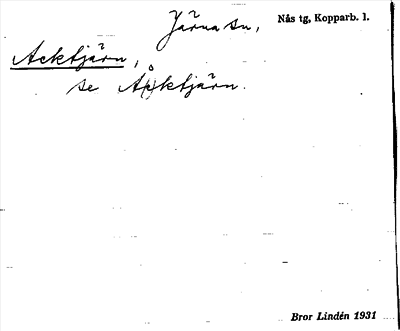 Järna sn, Nås tg, Kopparb. l.
Acktjärn,
se
Bror Lindén 1931